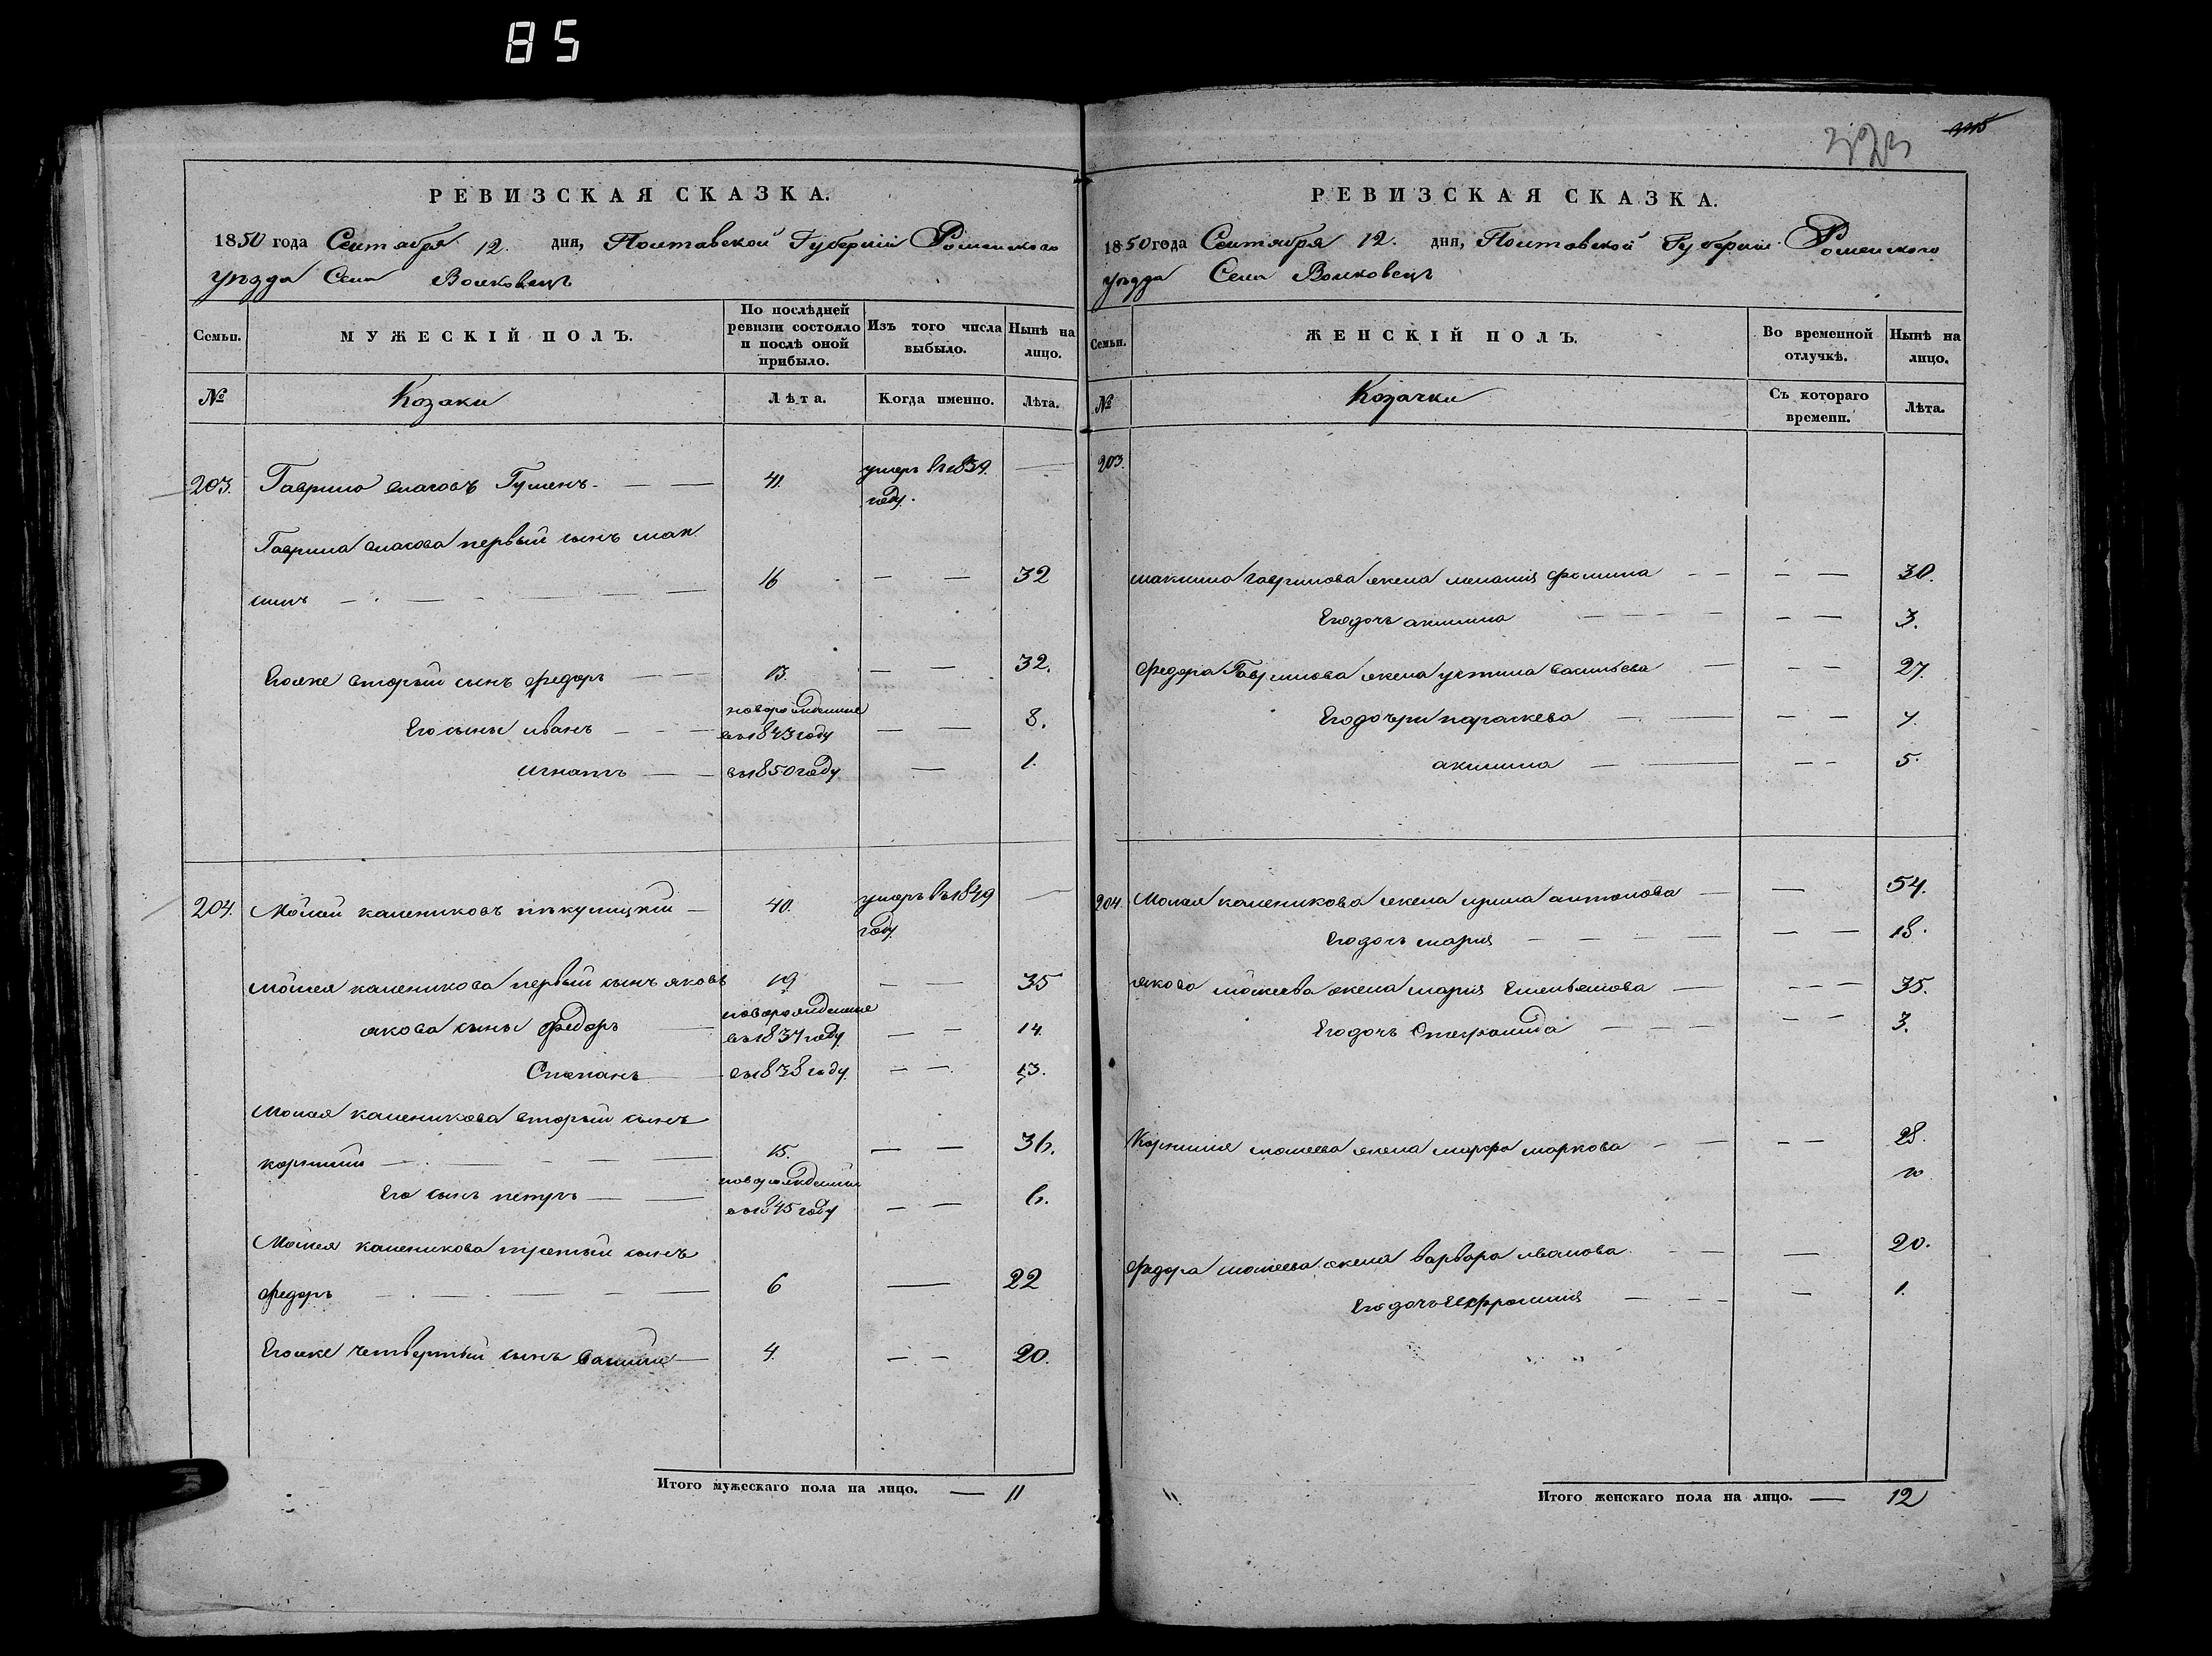 85
323
РЕВИЗСКАЯ СКАЗКА.
1850 года Сентября 12. дня, Полтавской Губернии Роменского
уезда Села Волковец
Семьи. МУЖЕСКІЙ ПОЛЪ. По послѣдней ревизіи состояло и послѣ оной прибыло. Изъ того числа выбыло. Нынѣ на лицо.
№ Козаки Лѣта. Когда именно. Лѣта.
203. Гаврило власовъ Гуменъ 41. умеръ въ 1839. году.
Гаврила власова первый сынъ мак
симъ 16 32
Егоже вторый сынъ федоръ 13. 32.
Его сыны иванъ новорожденные въ 1843 году 8.
игнатъ въ 1850 году 1.
204. Мойсей калениковъ 40. умеръ въ 1849 году
Мойсея каленикова первый сынъ яковъ 19 35
якова сыны федоръ новорожденные въ 1837 году 14.
Степанъ въ 1838 году 13.
Мойсея каленикова вторый сынъ
корнилий 15. 36.
Его сынъ петръ новорожденный въ 1845 году 6.
Мойсея каленикова третый сынъ
федоръ 6 22
Егоже четвертый сынъ василий 4. 20.
Итого мужескаго пола на лицо. 11
РЕВИЗСКАЯ СКАЗКА.
1850 года Сентября 12. дня, Полтавской Губернии Роменского
уезда Села Волковец
Семьи. ЖЕНСКІЙ ПОЛЪ. Во временной отлучкѣ. Нынѣ на лицо.
№ Козачки Съ котораго времени. Лѣта.
203.
максима гаврилова жена мелания фомина 30.
Его дочь акилина 3.
федора Гаврилова жена устина васильева 27.
Его дочери параскева 7
акилина 5.
204. Мойсея каленикова жена ирина антонова 54.
Его дочь мария 18.
якова мойсеева жена мария Емельянова 35.
Его дочь Степанида 3.
Корнилия мойсеева жена марфа маркова 28.
10
федора мойсеева жена варвара иванова 20.
Его дочь Ефросиния 1.
Итого женскаго пола на лицо. 12